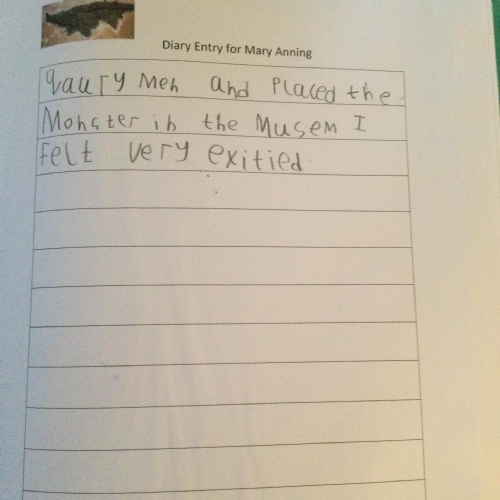 Diary Entry for Mary Anning
qaury Men and Placed the
Monster in the Musem I
Felt very exitied.